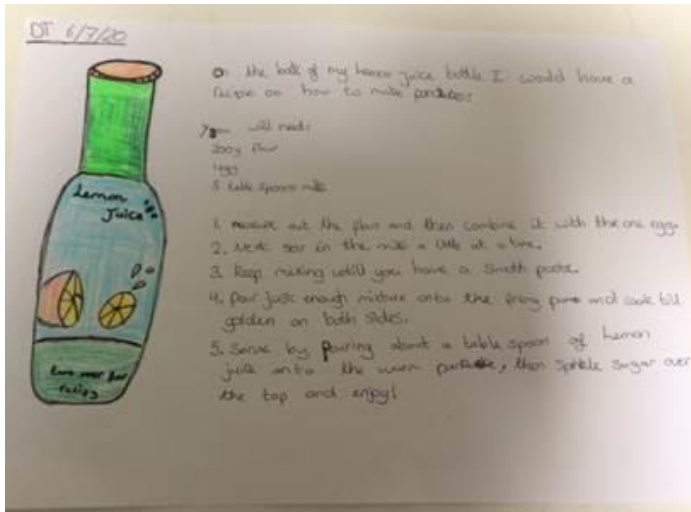 DT 6/7/20
Lemon
Juice
turn over for
recipe
on the back of my lemon juice bottle I would have a
recipe on how to make pancakes:
You will need:
200g flour
1 egg
5 table spoons milk
1. measure out the flour and then combine it with the one egg.
2. Next stir in the milk a little at a time.
3. Keep mixing until you have a smooth paste.
4. Pour just enough mixture onto the frying pan and cook till
golden on both sides.
5. Serve by pouring about a table spoon of lemon
juice onto the warm pancake, then sprinkle sugar over
the top and enjoy!